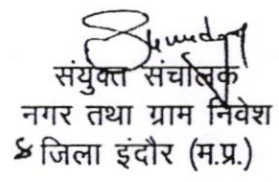 संयुक्त संचालक
नगर तथा ग्राम निवेश
जिला इंदौर (म.प्र.)